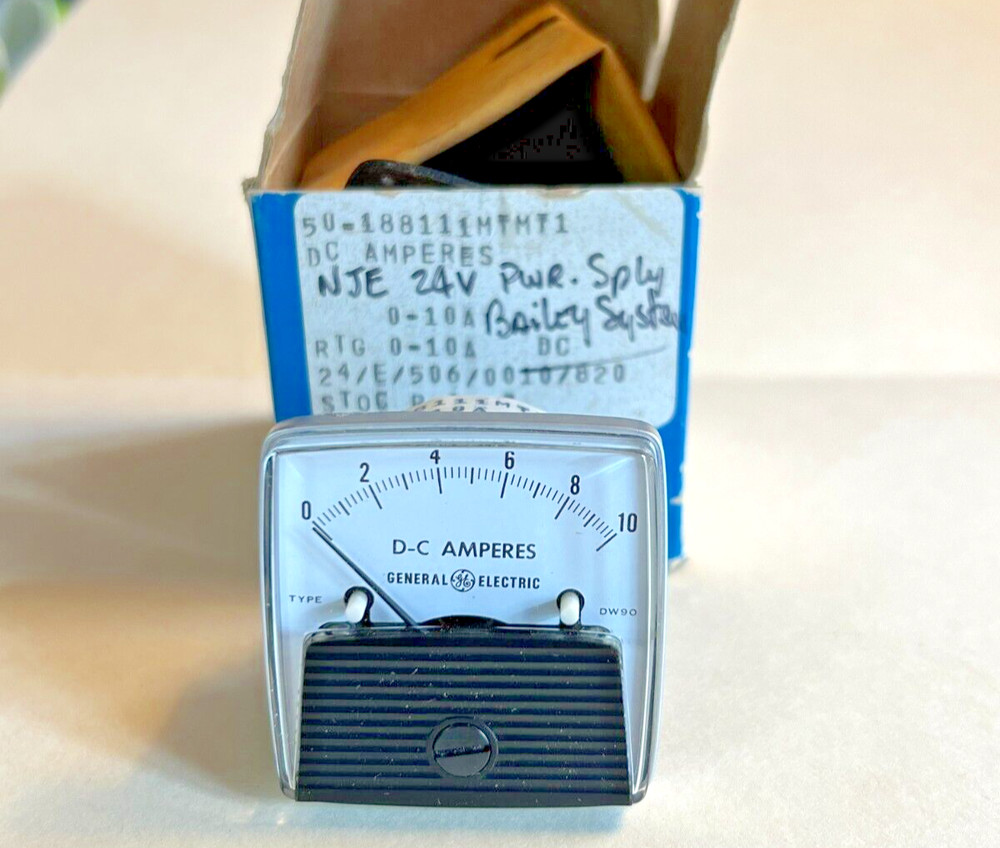 50-188111MTMT1
DC AMPERES
NJE 24V PWR. Sply
0-10A Bailey System
RTG 0-10A DC
24/E/506/0010/820
STOC
0 2 4 6 8 10
D-C AMPERES
GENERAL GE ELECTRIC
TYPE DW90